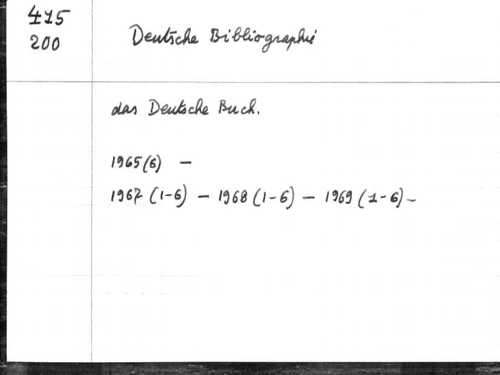 415
200
Deutsche Bibliographie
das Deutsche Buch.
1965(6) —
1967 (1-6) — 1968 (1-6) — 1969 (1-6) —